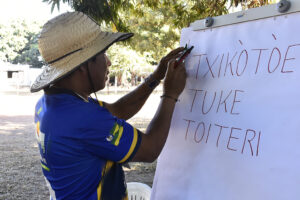 TXIKÒTÒE
TUKE
TOITERI